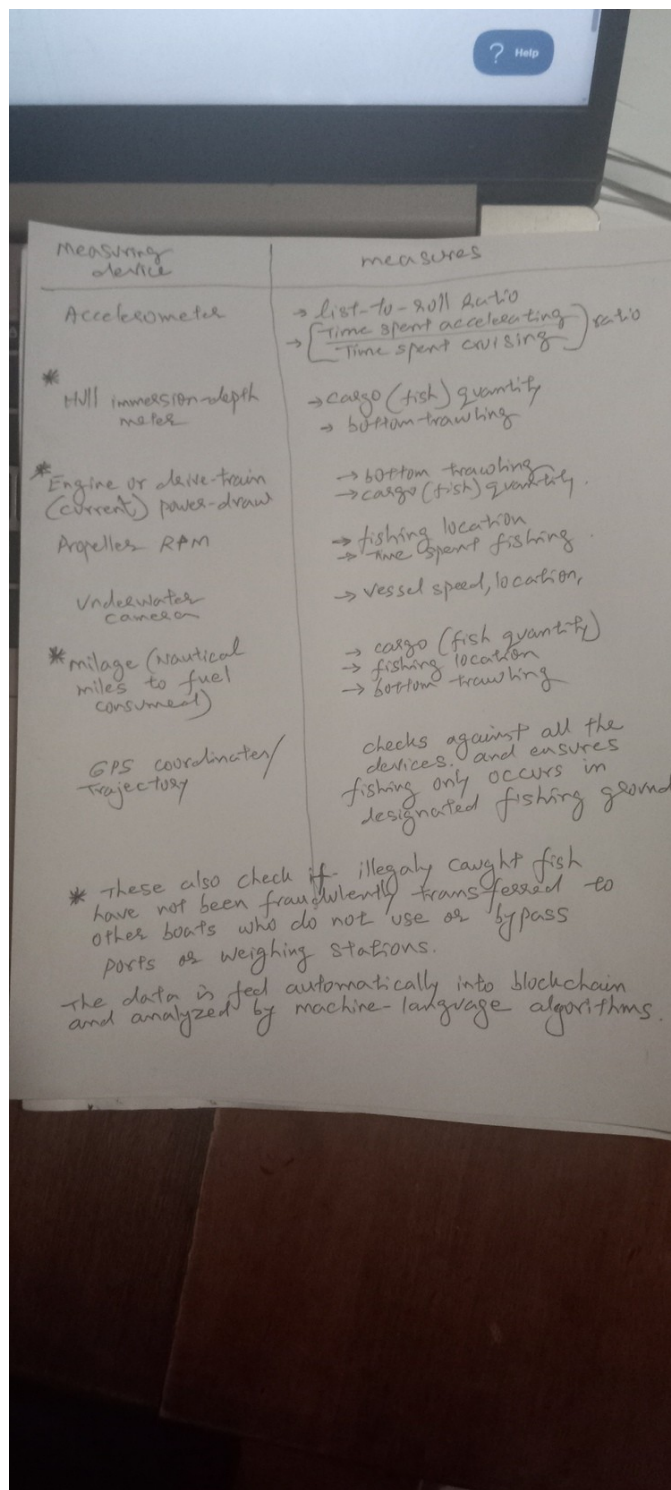 ? Help
Measuring device
measures
Accelerometer
→ list-to-roll Ratio
→ [Time spent accelerating / Time spent cruising] ratio
*
Hull immersion-depth meter
→ cargo (fish) quantity
→ bottom-trawling
* Engine or drive-train
(current) power-draw
→ bottom trawling
→ cargo (fish) quantity.
Propeller RPM
→ fishing location
→ time spent fishing.
Underwater camera
→ vessel speed, location,
* milage (Nautical
miles to fuel
consumed)
→ cargo (fish quantity)
→ fishing location
→ bottom trawling
GPS coordinates/
Trajectory
checks against all the
devices. and ensures
fishing only occurs in
designated fishing ground
* These also check if illegaly caught fish
have not been fraudulently transferred to
other boats who do not use or bypass
ports or weighing stations.
The data is fed automatically into blockchain
and analyzed by machine-language algorithms.